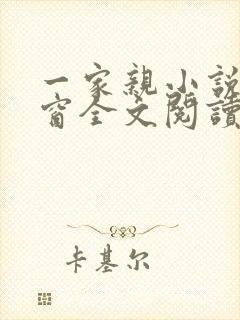 一家親小說
窗全文閱讀
卡基尔